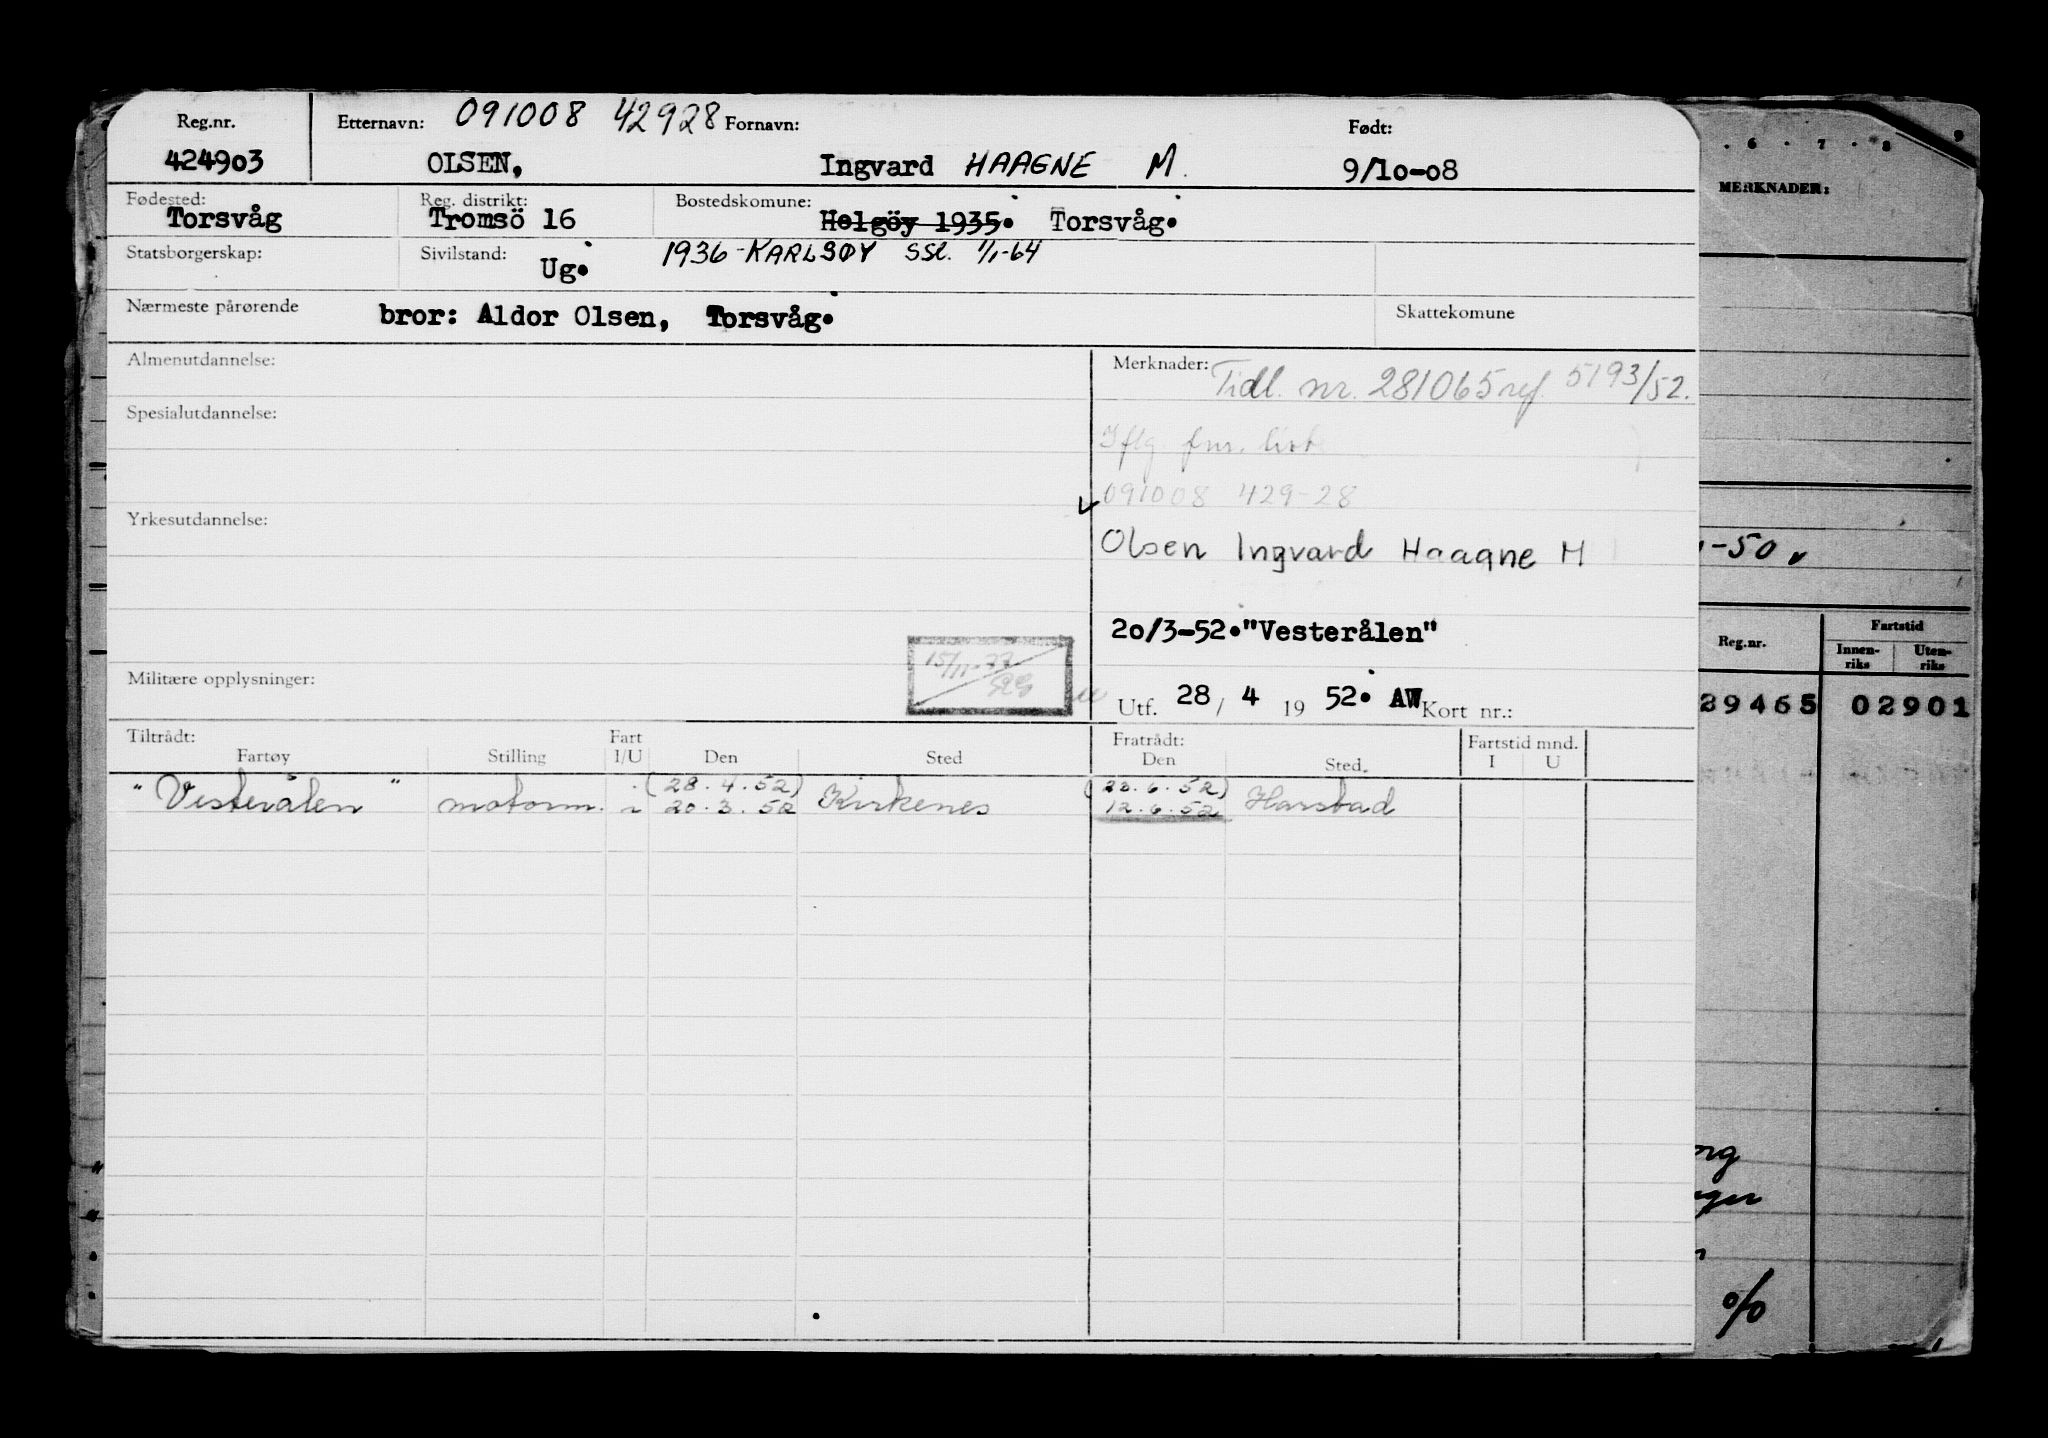 Reg.nr. Etternavn: 091008 42928 Fornavn: Født:
424903 OLSEN, Ingvard HAAGNE M. 9/10-08
Fødested: Reg. distrikt: Bostedskomune:
Torsvåg Tromsö 16 Helgöy 1935. Torsvåg.
Statsborgerskap: Sivilstand: Ug. 1936-KARLSØY SSL. 1/1-64
Nærmeste pårørende bror: Aldor Olsen, Torsvåg. Skattekomune
Almenutdannelse: Merknader: Tidl. nr. 281065 ref. 5193/52.
Spesialutdannelse:
Iflg. fnr. list
091008 429-28
Yrkesutdannelse:
Olsen Ingvard Haagne M
20/3-52."Vesterålen"
15/11-77
Militære opplysninger:
Utf. 28/ 4 19 52. AW Kort nr.:
Tiltrådt: Fart Fratrådt: Fartstid mnd.
Fartøy Stilling I/U Den Sted Den Sted. I U
(28.4.52) (23.6.52)
"Vesterålen" motorm. 20.3.52 Kirkenes 12.6.52 Harstad
6 7 8 9
MERKNADER:
-50
Reg.nr. Fartstid
Innen-riks Uten-riks
39465 02901
%